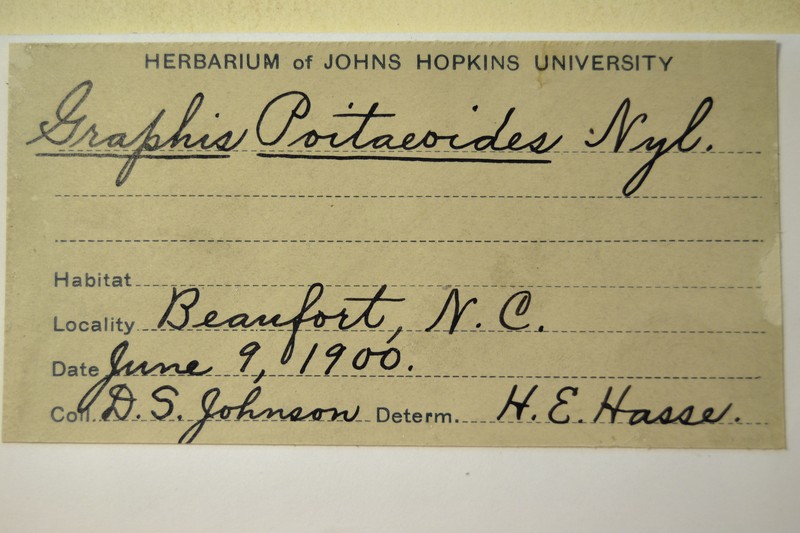 HERBARIUM of JOHNS HOPKINS UNIVERSITY
Graphis Poitaeoides Nyl.
Habitat
Locality Beaufort, N. C.
Date June 9, 1900.
Coll. D. S. Johnson Determ. H. E. Hasse.